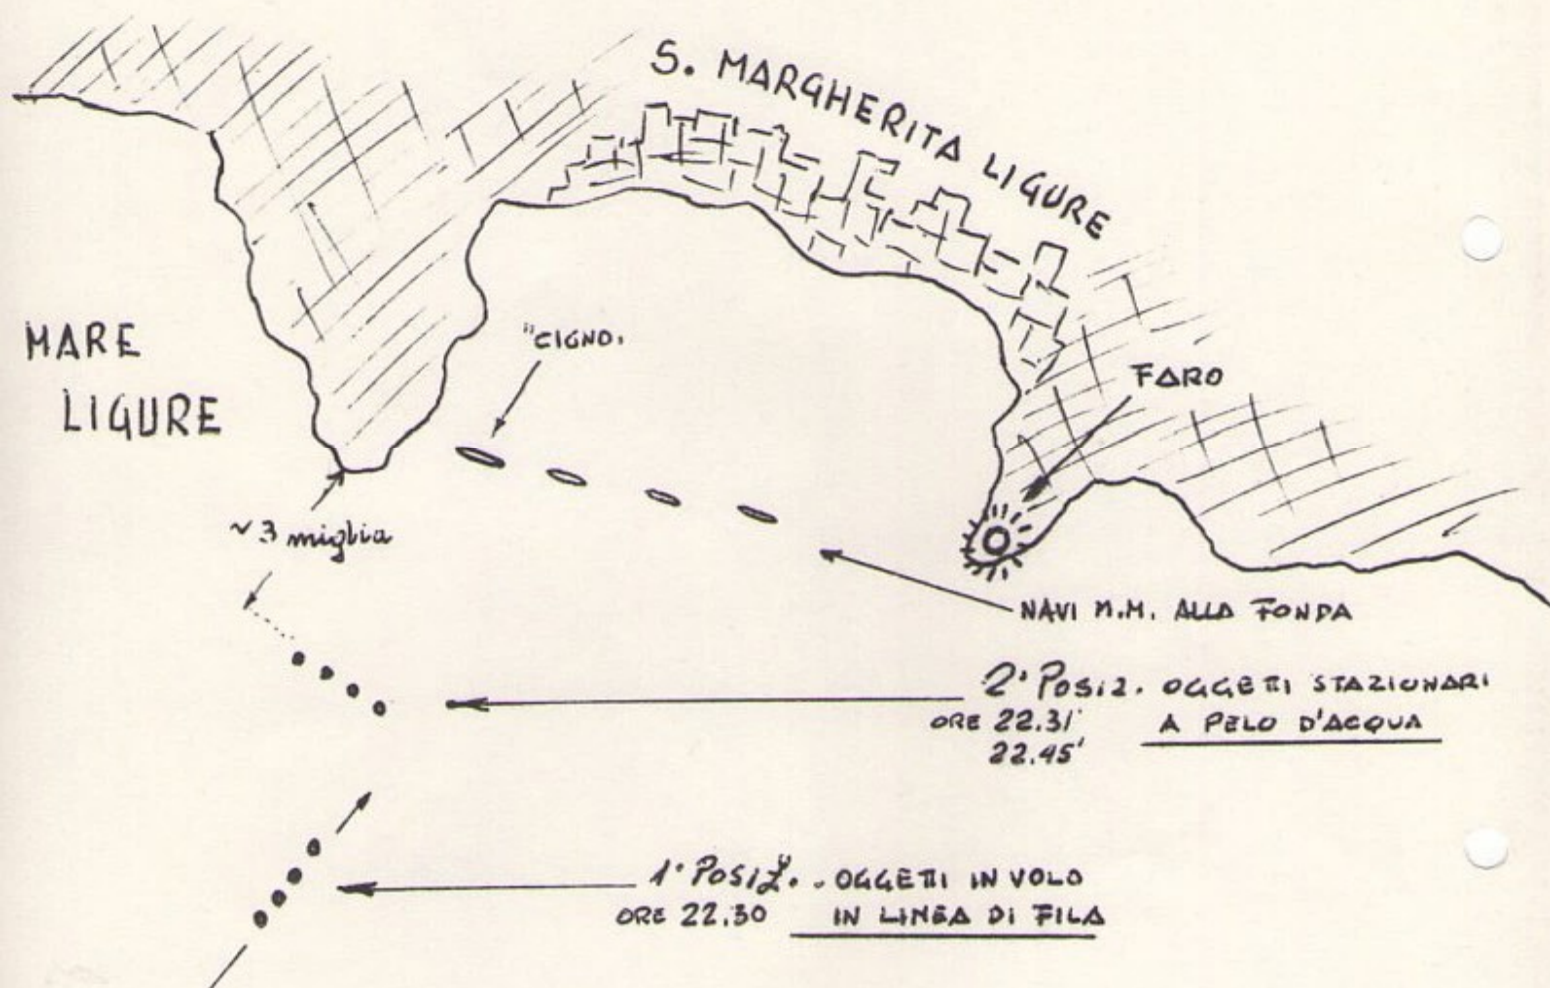 S. MARGHERITA LIGURE
MARE
LIGURE
"CIGNO"
FARO
~ 3 miglia
NAVI M.M. ALLA FONDA
2ª POSIZ. OGGETTI STAZIONARI
ORE 22.31' A PELO D'ACQUA
22.45'
1ª POSIZ. - OGGETTI IN VOLO
ORE 22.30 IN LINEA DI FILA